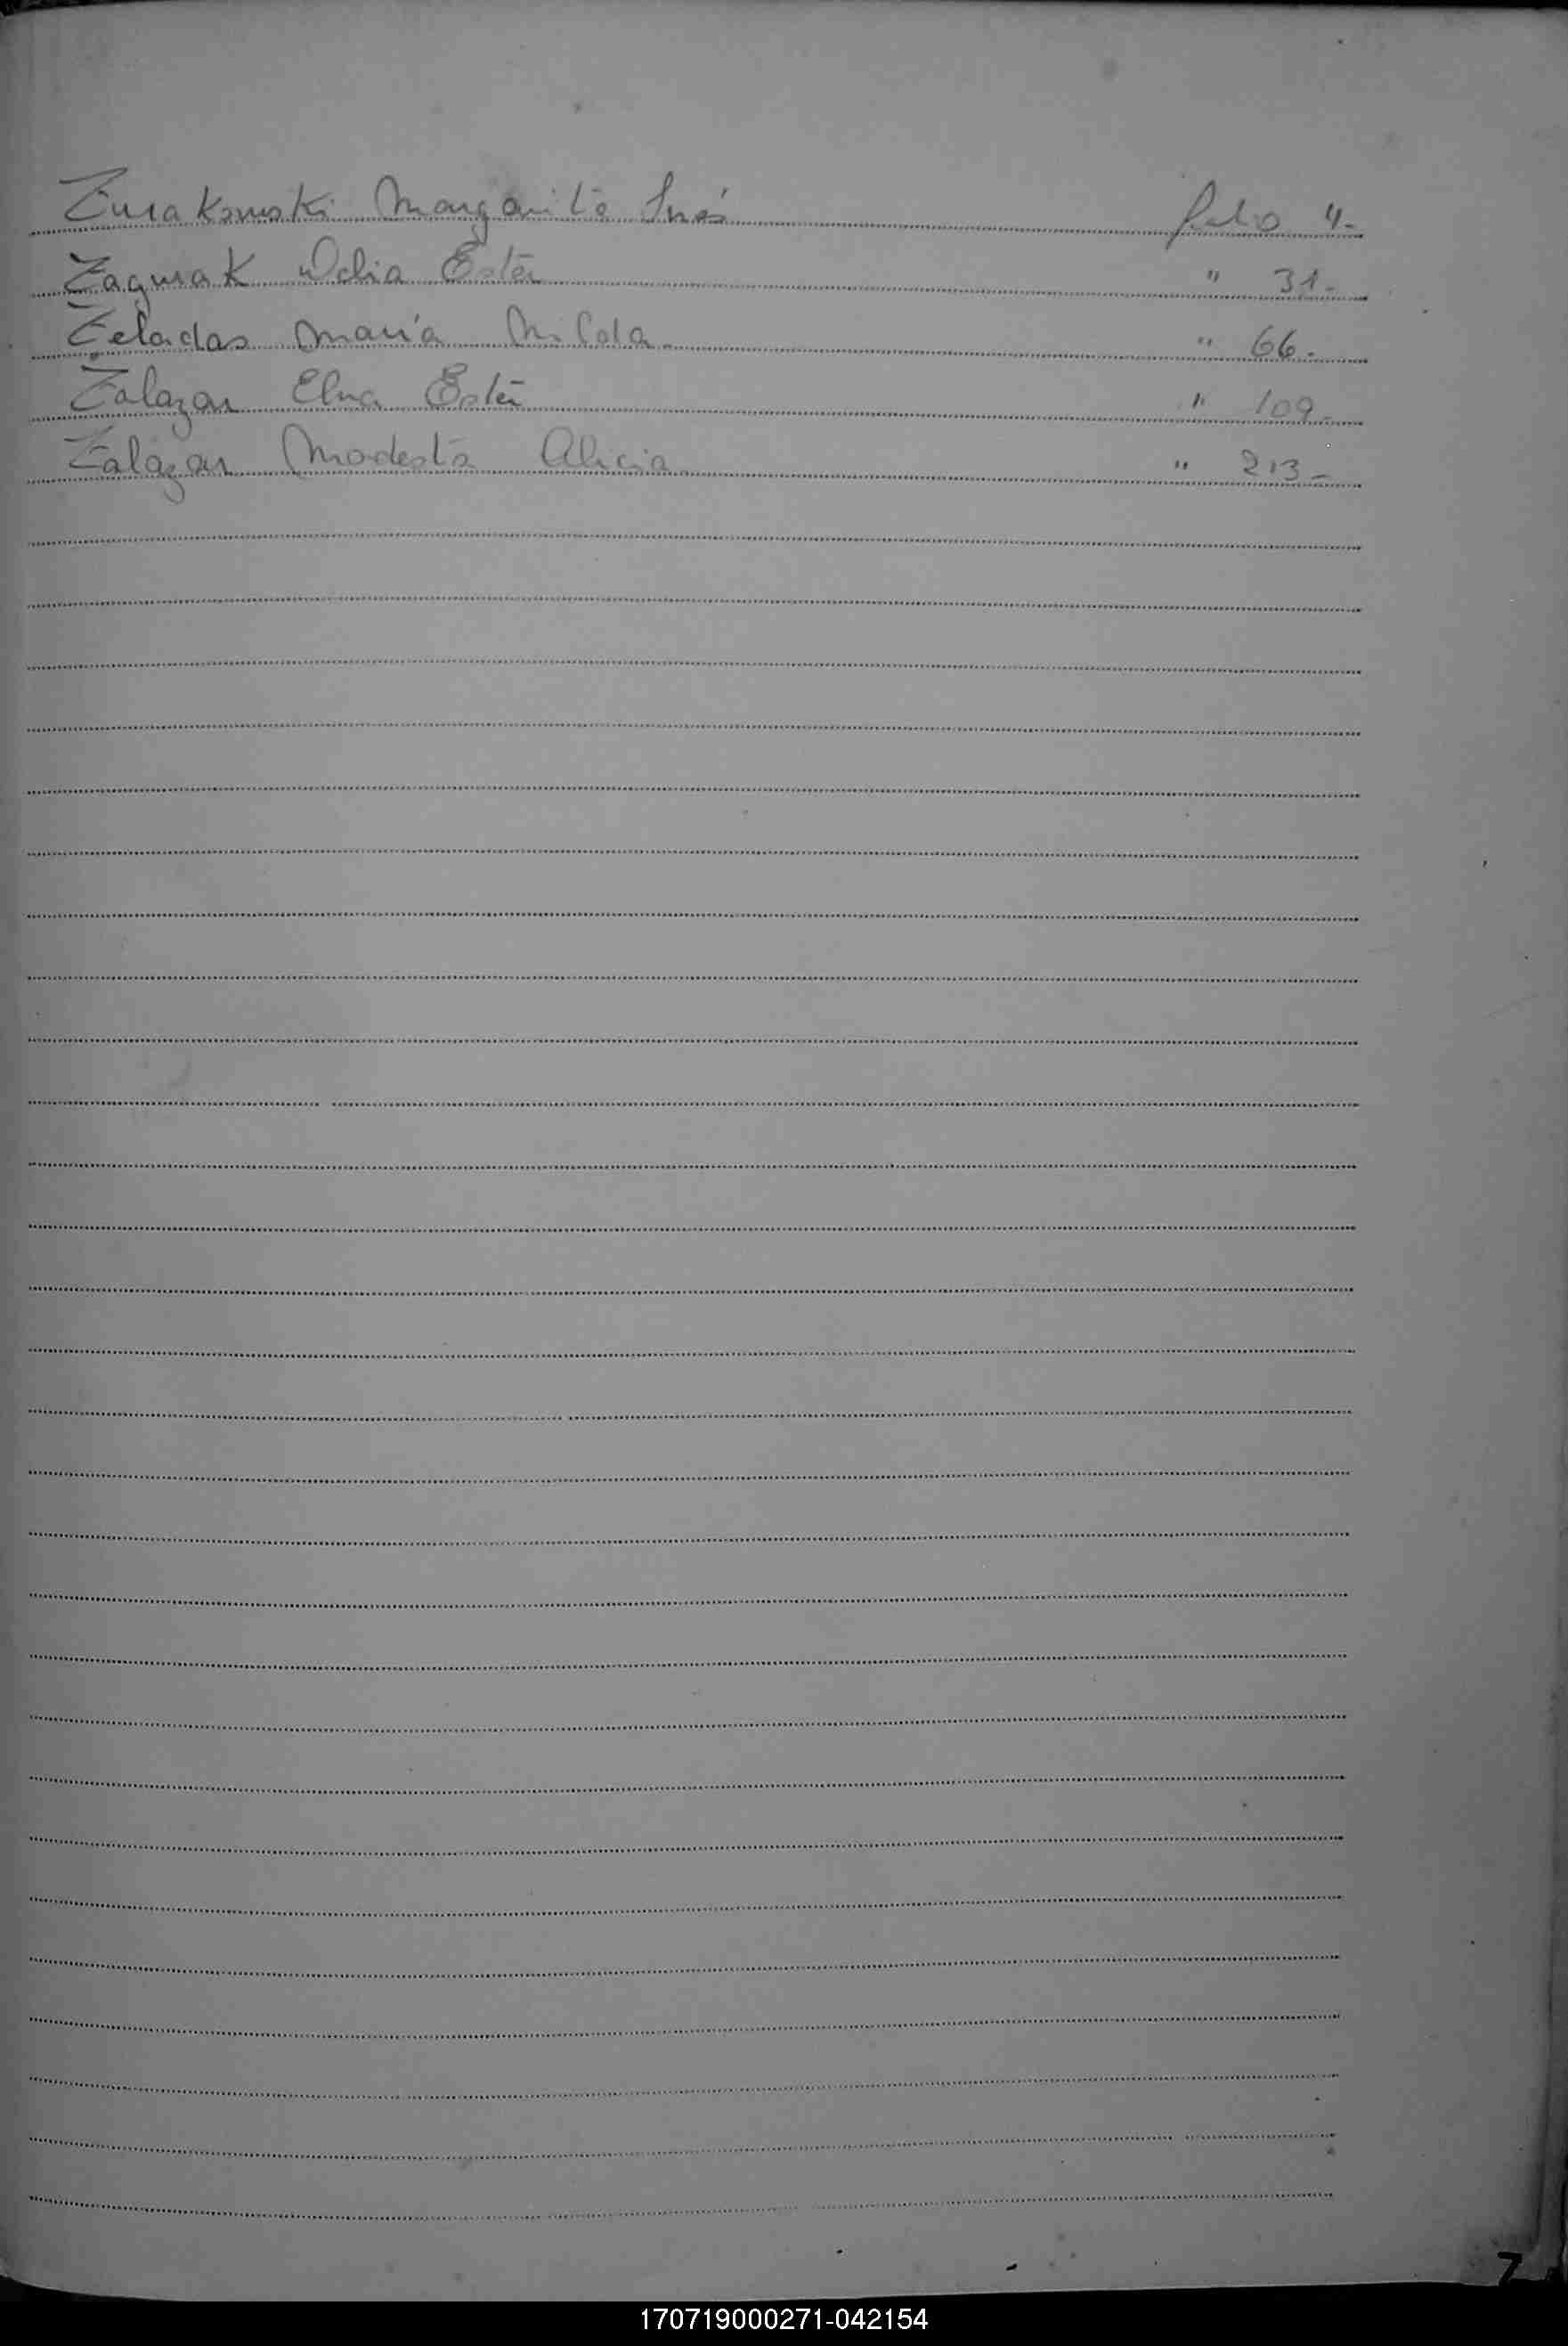 Zurakowski Margarita Inés folio 4.-
Zagurak Delia Ester " 31.-
Zeladas María Milda " 66.-
Zalazar Elva Ester " 109.-
Zalazar Modesta Alicia " 213-
Z
170719000271-042154